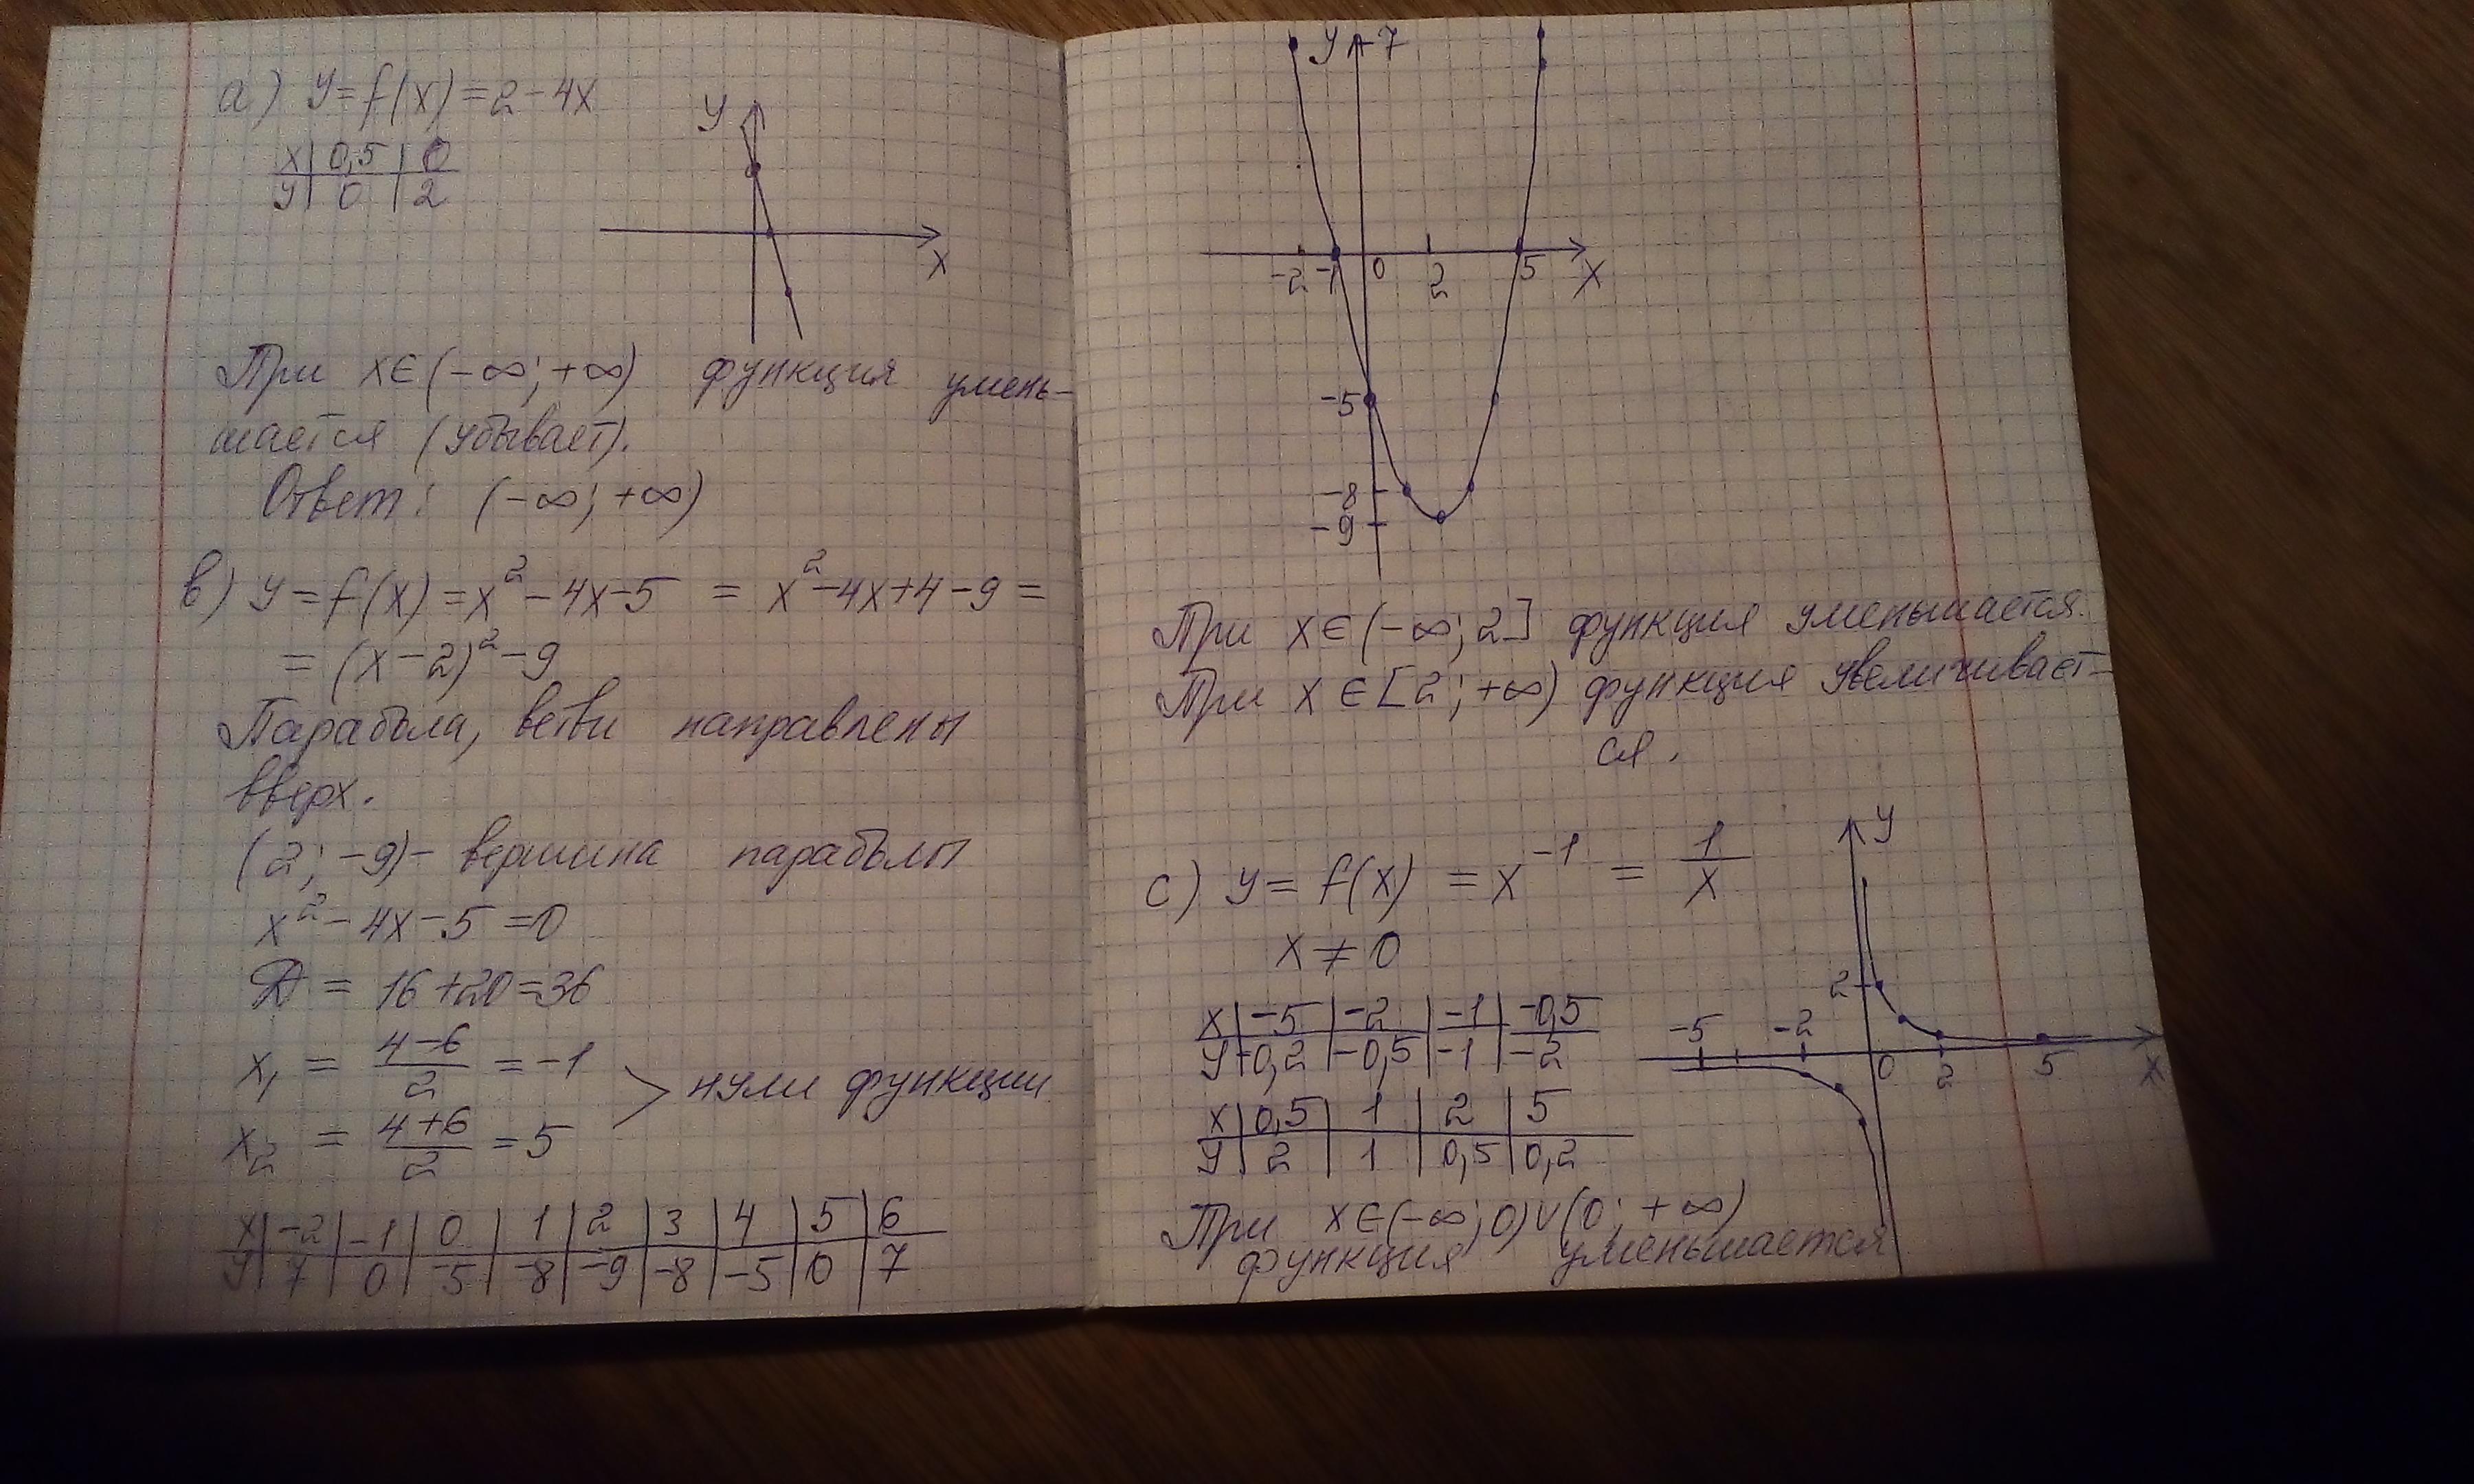 а) y=f(x)=2-4x
x | 0,5 | 0
y | 0 | 2
y
x
При x∈(-∞;+∞) функция умень-
шается (убывает).
Ответ: (-∞;+∞)
в) y=f(x)=x²-4x-5 = x²-4x+4-9=
=(x-2)²-9
Парабола, ветви направлены
вверх.
(2;-9)- вершина параболы
x²-4x-5=0
Д = 16+20=36
x₁ = (4-6)/2 = -1
x₂ = (4+6)/2 = 5
> нули функции
x | -2 | -1 | 0 | 1 | 2 | 3 | 4 | 5 | 6
y | 7 | 0 | -5 | -8 | -9 | -8 | -5 | 0 | 7
y 7
-2 -1 0 2 5 x
-5
-8
-9
При x∈(-∞;2] функция уменьшается.
При x∈[2;+∞) функция увеличивает-
ся.
с) y= f(x) = x⁻¹ = 1/x
x≠0
x | -5 | -2 | -1 | -0,5
y | -0,2 | -0,5 | -1 | -2
x | 0,5 | 1 | 2 | 5
y | 2 | 1 | 0,5 | 0,2
y
2
-5 -2 0 2 5 x
При x∈(-∞;0)∪(0;+∞)
функция уменьшается